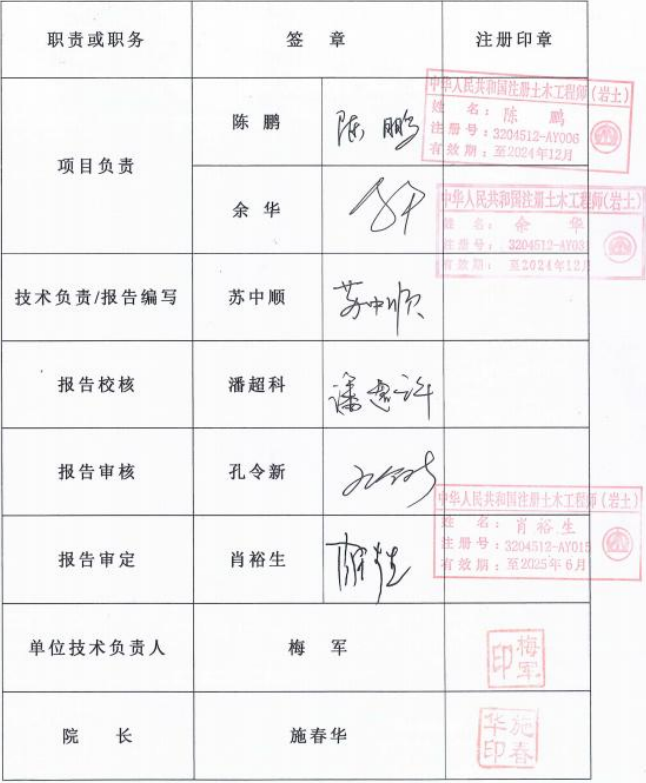 职责或职务 签 章 注册印章
项目负责
陈 鹏 陈鹏
中华人民共和国注册土木工程师(岩土)
姓 名：陈 鹏
注册号：3204512-AY006
有效期：至2024年12月
余 华
中华人民共和国注册土木工程师(岩土)
姓 名：余 华
注册号：3204512-AY03
有效期：至2024年12月
技术负责/报告编写 苏中顺 苏中顺
报告校核 潘超科
报告审核 孔令新
中华人民共和国注册土木工程师(岩土)
姓 名：肖裕生
注册号：3204512-AY015
有效期：至2025年6月
报告审定 肖裕生
单位技术负责人 梅 军
梅军印
院 长 施春华
施春华印